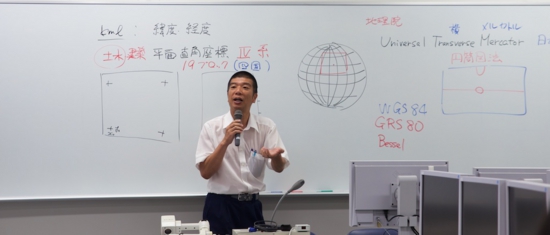 kml : 緯度 経度
土木 建築 平面直角座標 Ⅳ系
(四国)
横 メルカトル
Universal Transverse Mercator
WGS84
GRS80
Bessel